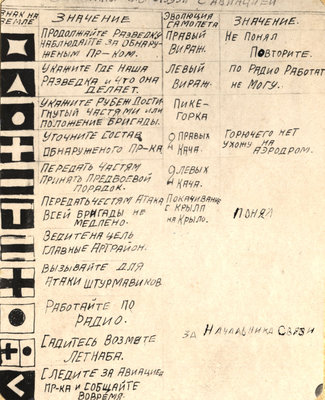 С АВИАЦИЕЙ
ЗНАК НА ЗЕМЛЕ
ЗНАЧЕНИЕ
ЭВОЛЮЦИЯ САМОЛЕТА
ЗНАЧЕНИЕ.
ПРОДОЛЖАЙТЕ РАЗВЕДКУ
НАБЛЮДАЙТЕ ЗА ОБНАРУ-
ЖЕНЫМ ПР-КОМ.
ПРАВЫЙ
ВИРАЖ.
НЕ ПОНЯЛ
ПОВТОРИТЕ.
УКАЖИТЕ ГДЕ НАША
РАЗВЕДКА И ЧТО ОНА
ДЕЛАЕТ.
ЛЕВЫЙ
ВИРАЖ.
ПО РАДИО РАБОТАТ
НЕ МОГУ.
УКАЖИТЕ РУБЕЖ ДОСТИ
ГНУТЫЙ ЧАСТЯМИ ИЛИ
ПОЛОЖЕНИЕ БРИГАДЫ.
ПИКЕ-
ГОРКА
УТОЧНИТЕ СОСТАВ
ОБНАРУЖЕНОГО ПР-КА
ПРАВЫХ
КАЧА.
ГОРЮЧЕГО НЕТ
УХОЖУ НА
АЭРОДРОМ.
ПЕРЕДАТЬ ЧАСТЯМ
ПРИНЯТЬ ПРЕДБОЕВОЙ
ПОРЯДОК.
ЛЕВЫХ
КАЧА.
ПЕРЕДАТЬ ЧЕСТЯМ АТАКА
ВСЕЙ БРИГАДЫ НЕ
МЕДЛЕНО.
ПОКАЧИВАНИЕ
С КРЫЛА
НА КРЫЛО.
ПОНЯЛ
ВЕДИТЕ НА ЦЕЛЬ
ГЛАВНЫЕ АРТРАЙОН.
ВЫЗЫВАЙТЕ ДЛЯ
АТАКИ ШТУРМАВИКОВ
РАБОТАЙТЕ ПО
РАДИО.
САДИТЕСЬ ВОЗМИТЕ
ЛЕТНАБА.
ЗА НАЧАЛЬНИКА СВЯЗИ
СЛЕДИТЕ ЗА АВИАЦИЕ
ПР-КА И СОБЩАЙТЕ
ВОВРЕМЯ.